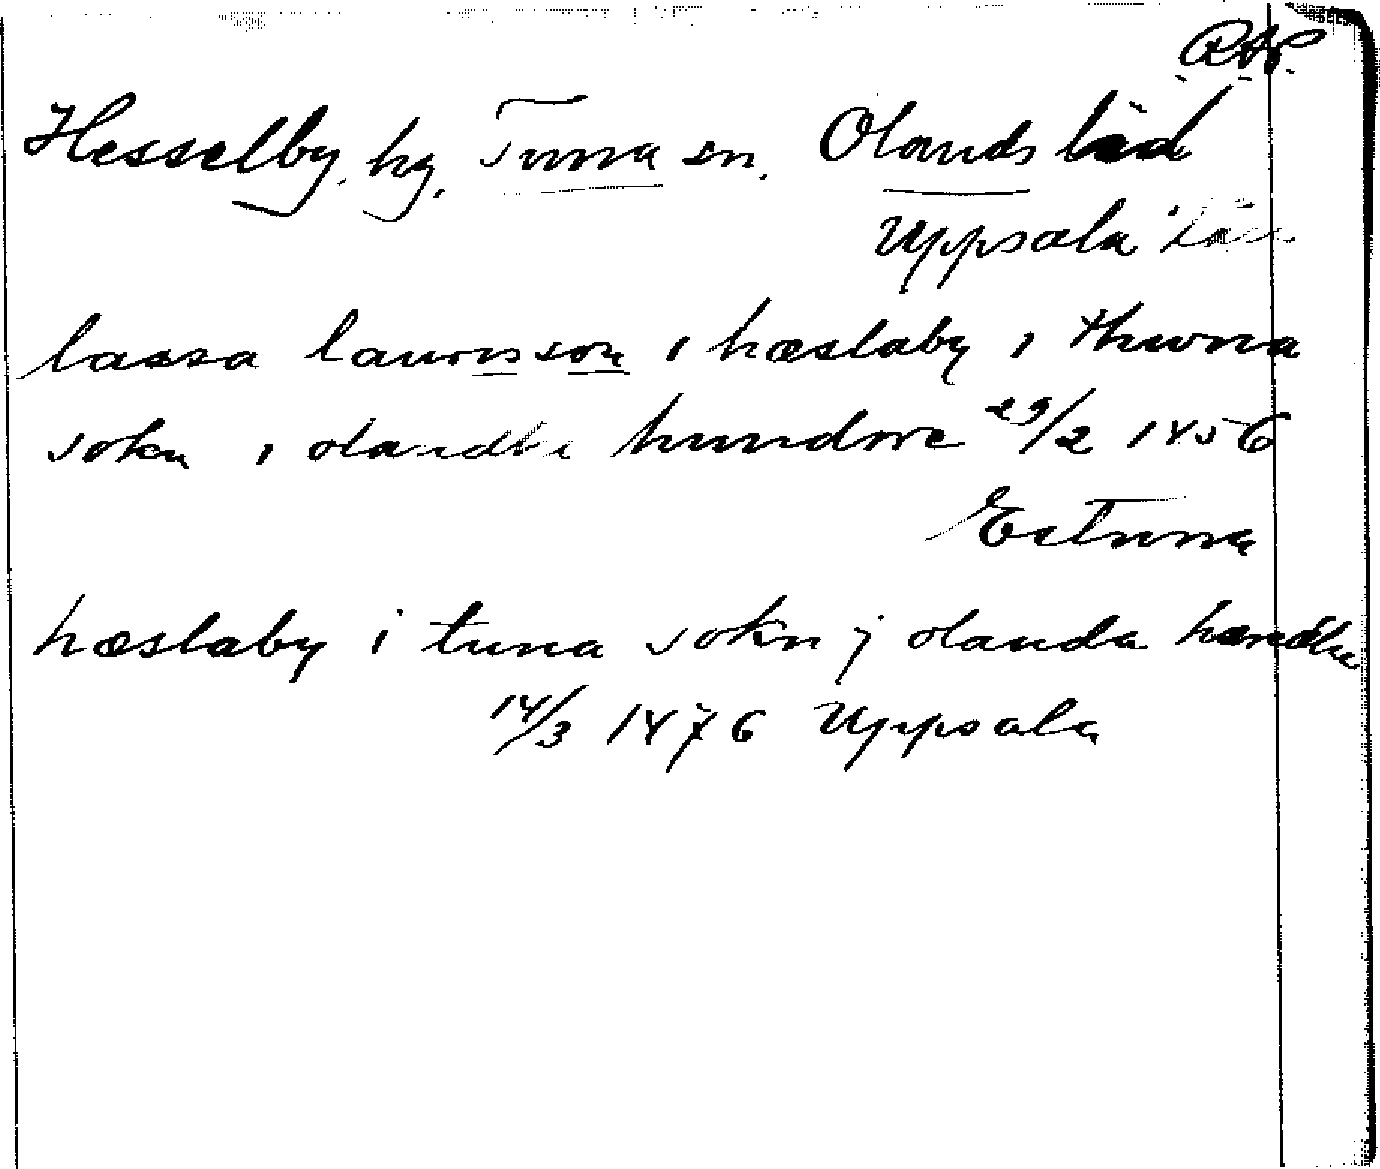 RAP.
Hesselby, by, Tuna sn. Olands häd
Uppsala län
lassa laurisson i hæslaby i thuna
sokn i olandha hundore 29/2 1456
Estuna
hæslaby i tuna sokn j olanda hændhe
14/3 1476 Uppsala